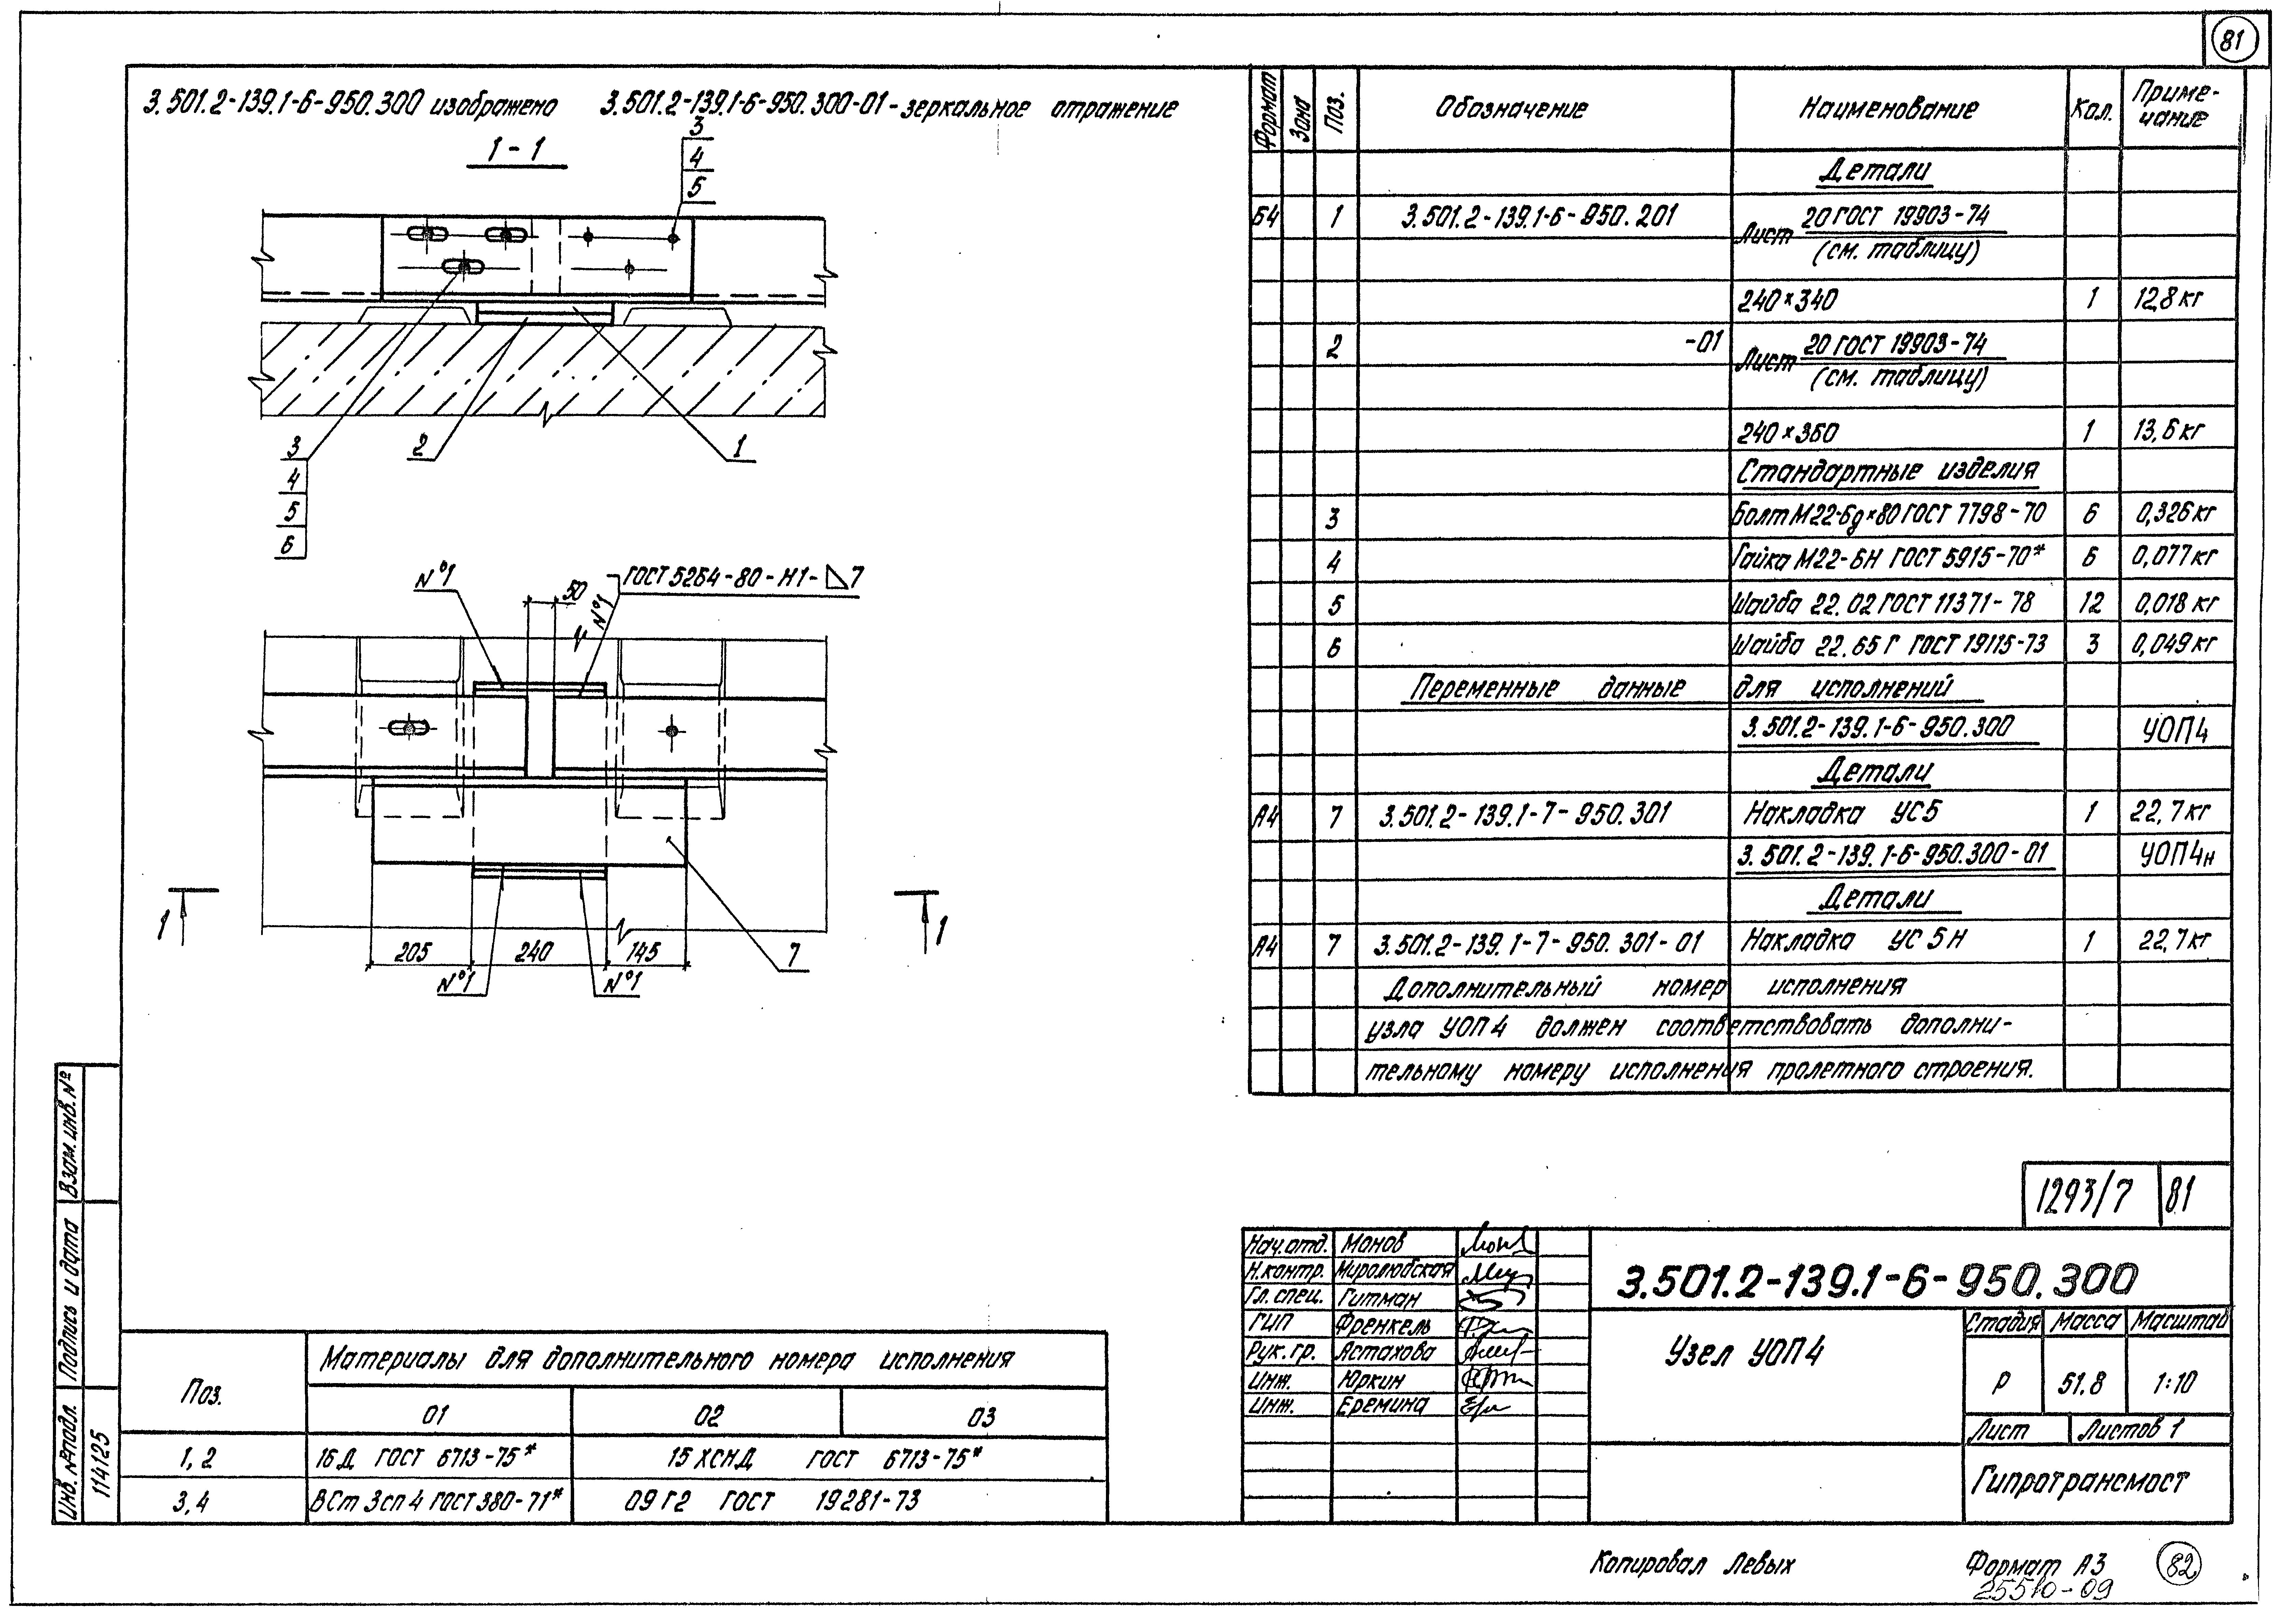 81
3.501.2-139.1-6-950.300 изображено 3.501.2-139.1-6-950.300-01-зеркальное отражение
1-1
3
4
5
3
4
5
6
2
1
N°1
50
N°1
ГОСТ 5264-80-Н1-◺7
205
240
145
N°1
N°1
7
1
1
Формат Зона Поз. Обозначение Наименование Кол. Приме-
чание
Детали
Б4 1 3.501.2-139.1-6-950.201 Лист 20 ГОСТ 19903-74
(см. таблицу)
240×340 1 12,8 кг
2 -01 Лист 20 ГОСТ 19903-74
(см. таблицу)
240×360 1 13,6 кг
Стандартные изделия
3 Болт М22-6g×80 ГОСТ 7798-70 6 0,326 кг
4 Гайка М22-6Н ГОСТ 5915-70* 6 0,077 кг
5 Шайба 22.02 ГОСТ 11371-78 12 0,018 кг
6 Шайба 22.65Г ГОСТ 19115-73 3 0,049 кг
Переменные данные для исполнений
3.501.2-139.1-6-950.300 УОП4
Детали
А4 7 3.501.2-139.1-7-950.301 Накладка УС5 1 22,7 кг
3.501.2-139.1-6-950.300-01 УОП4н
Детали
А4 7 3.501.2-139.1-7-950.301-01 Накладка УС5Н 1 22,7 кг
Дополнительный номер исполнения
узла УОП4 должен соответствовать дополни-
тельному номеру исполнения пролетного строения.
1293/7 81
Нач.отд. Монов
Н.контр. Миролюбская
Гл.спец. Гитман
ГИП Френкель
Рук.гр. Астахова
Инж. Юркин
Инж. Еремина
3.501.2-139.1-6-950.300
Узел УОП4
Стадия Масса Масштаб
Р 51.8 1:10
Лист Листов 1
Гипротрансмост
Поз. Материалы для дополнительного номера исполнения
01 02 03
1,2 16Д ГОСТ 6713-75* 15ХСНД ГОСТ 6713-75*
3,4 ВСт3сп4 ГОСТ380-71* 09Г2 ГОСТ 19281-73
Взам.инв.№
Подпись и дата
Инв.№подл.
114125
Копировал Левых Формат А3
82
25510-09